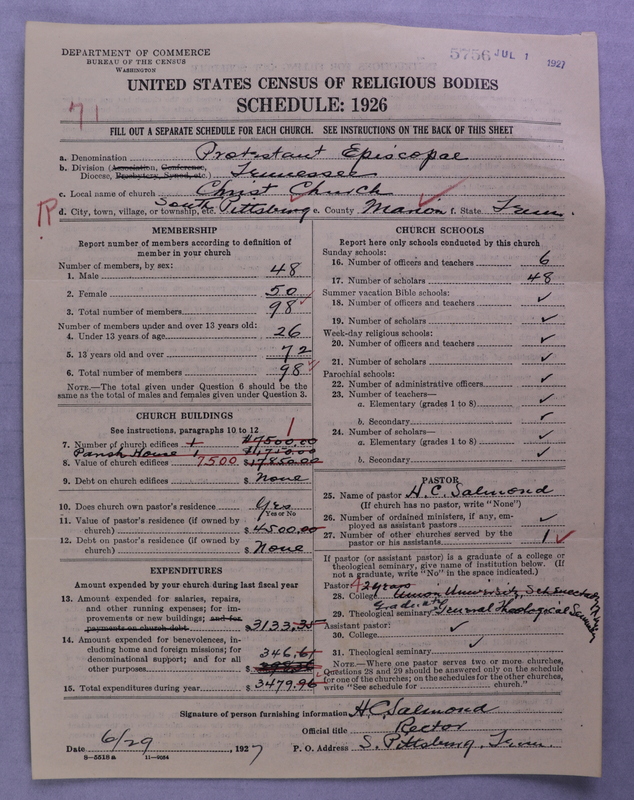 DEPARTMENT OF COMMERCE
BUREAU OF THE CENSUS
WASHINGTON
5756 JUL 1 1927
UNITED STATES CENSUS OF RELIGIOUS BODIES
SCHEDULE: 1926
71
FILL OUT A SEPARATE SCHEDULE FOR EACH CHURCH. SEE INSTRUCTIONS ON THE BACK OF THIS SHEET
a. Denomination Protestant Episcopal
b. Division (Association, Conference, Diocese, Presbytery, Synod, etc.) Tennessee
c. Local name of church Christ Church
d. City, town, village, or township, etc. South Pittsburg e. County Marion f. State Tenn.
MEMBERSHIP
Report number of members according to definition of
member in your church
Number of members, by sex:
1. Male 48
2. Female 50
3. Total number of members 98
Number of members under and over 13 years old:
4. Under 13 years of age 26
5. 13 years old and over 72
6. Total number of members 98
NOTE.—The total given under Question 6 should be the
same as the total of males and females given under Question 3.
CHURCH BUILDINGS
See instructions, paragraphs 10 to 12
7. Number of church edifices 1 $7500.00
Parish House 1
8. Value of church edifices 7500 $
9. Debt on church edifices $ None
10. Does church own pastor's residence Yes
Yes or No
11. Value of pastor's residence (if owned by
church) $ 4500.00
12. Debt on pastor's residence (if owned by
church) $ None
EXPENDITURES
Amount expended by your church during last fiscal year
13. Amount expended for salaries, repairs,
and other running expenses; for im-
provements or new buildings; and for
payments on church debt $3133.35
14. Amount expended for benevolences, in-
cluding home and foreign missions; for
denominational support; and for all
other purposes $ 346.61
15. Total expenditures during year $3479.96
CHURCH SCHOOLS
Report here only schools conducted by this church
Sunday schools:
16. Number of officers and teachers 6
17. Number of scholars 48
Summer vacation Bible schools:
18. Number of officers and teachers ✓
19. Number of scholars ✓
Week-day religious schools:
20. Number of officers and teachers ✓
21. Number of scholars ✓
Parochial schools:
22. Number of administrative officers ✓
23. Number of teachers—
a. Elementary (grades 1 to 8) ✓
b. Secondary ✓
24. Number of scholars—
a. Elementary (grades 1 to 8) ✓
b. Secondary ✓
PASTOR
25. Name of pastor H. C. Salmond
(If church has no pastor, write "None")
26. Number of ordained ministers, if any, em-
ployed as assistant pastors ✓
27. Number of other churches served by the
pastor or his assistants 1 ✓
If pastor (or assistant pastor) is a graduate of a college or
theological seminary, give name of institution below. (If
not a graduate, write "No" in the space indicated.)
Pastor: 2 years
28. College Union University, Schenectady N.Y.
Graduate
29. Theological seminary General Theological Seminary
Assistant pastor:
30. College ✓
31. Theological seminary ✓
NOTE.—Where one pastor serves two or more churches,
Questions 28 and 29 should be answered only on the schedule
for one of the churches; on the schedules for the other churches,
write "See schedule for church."
Signature of person furnishing information H. C. Salmond
Official title Rector
Date 6/29, 1927 P. O. Address S. Pittsburg, Tenn.
8—5518a 11—9084